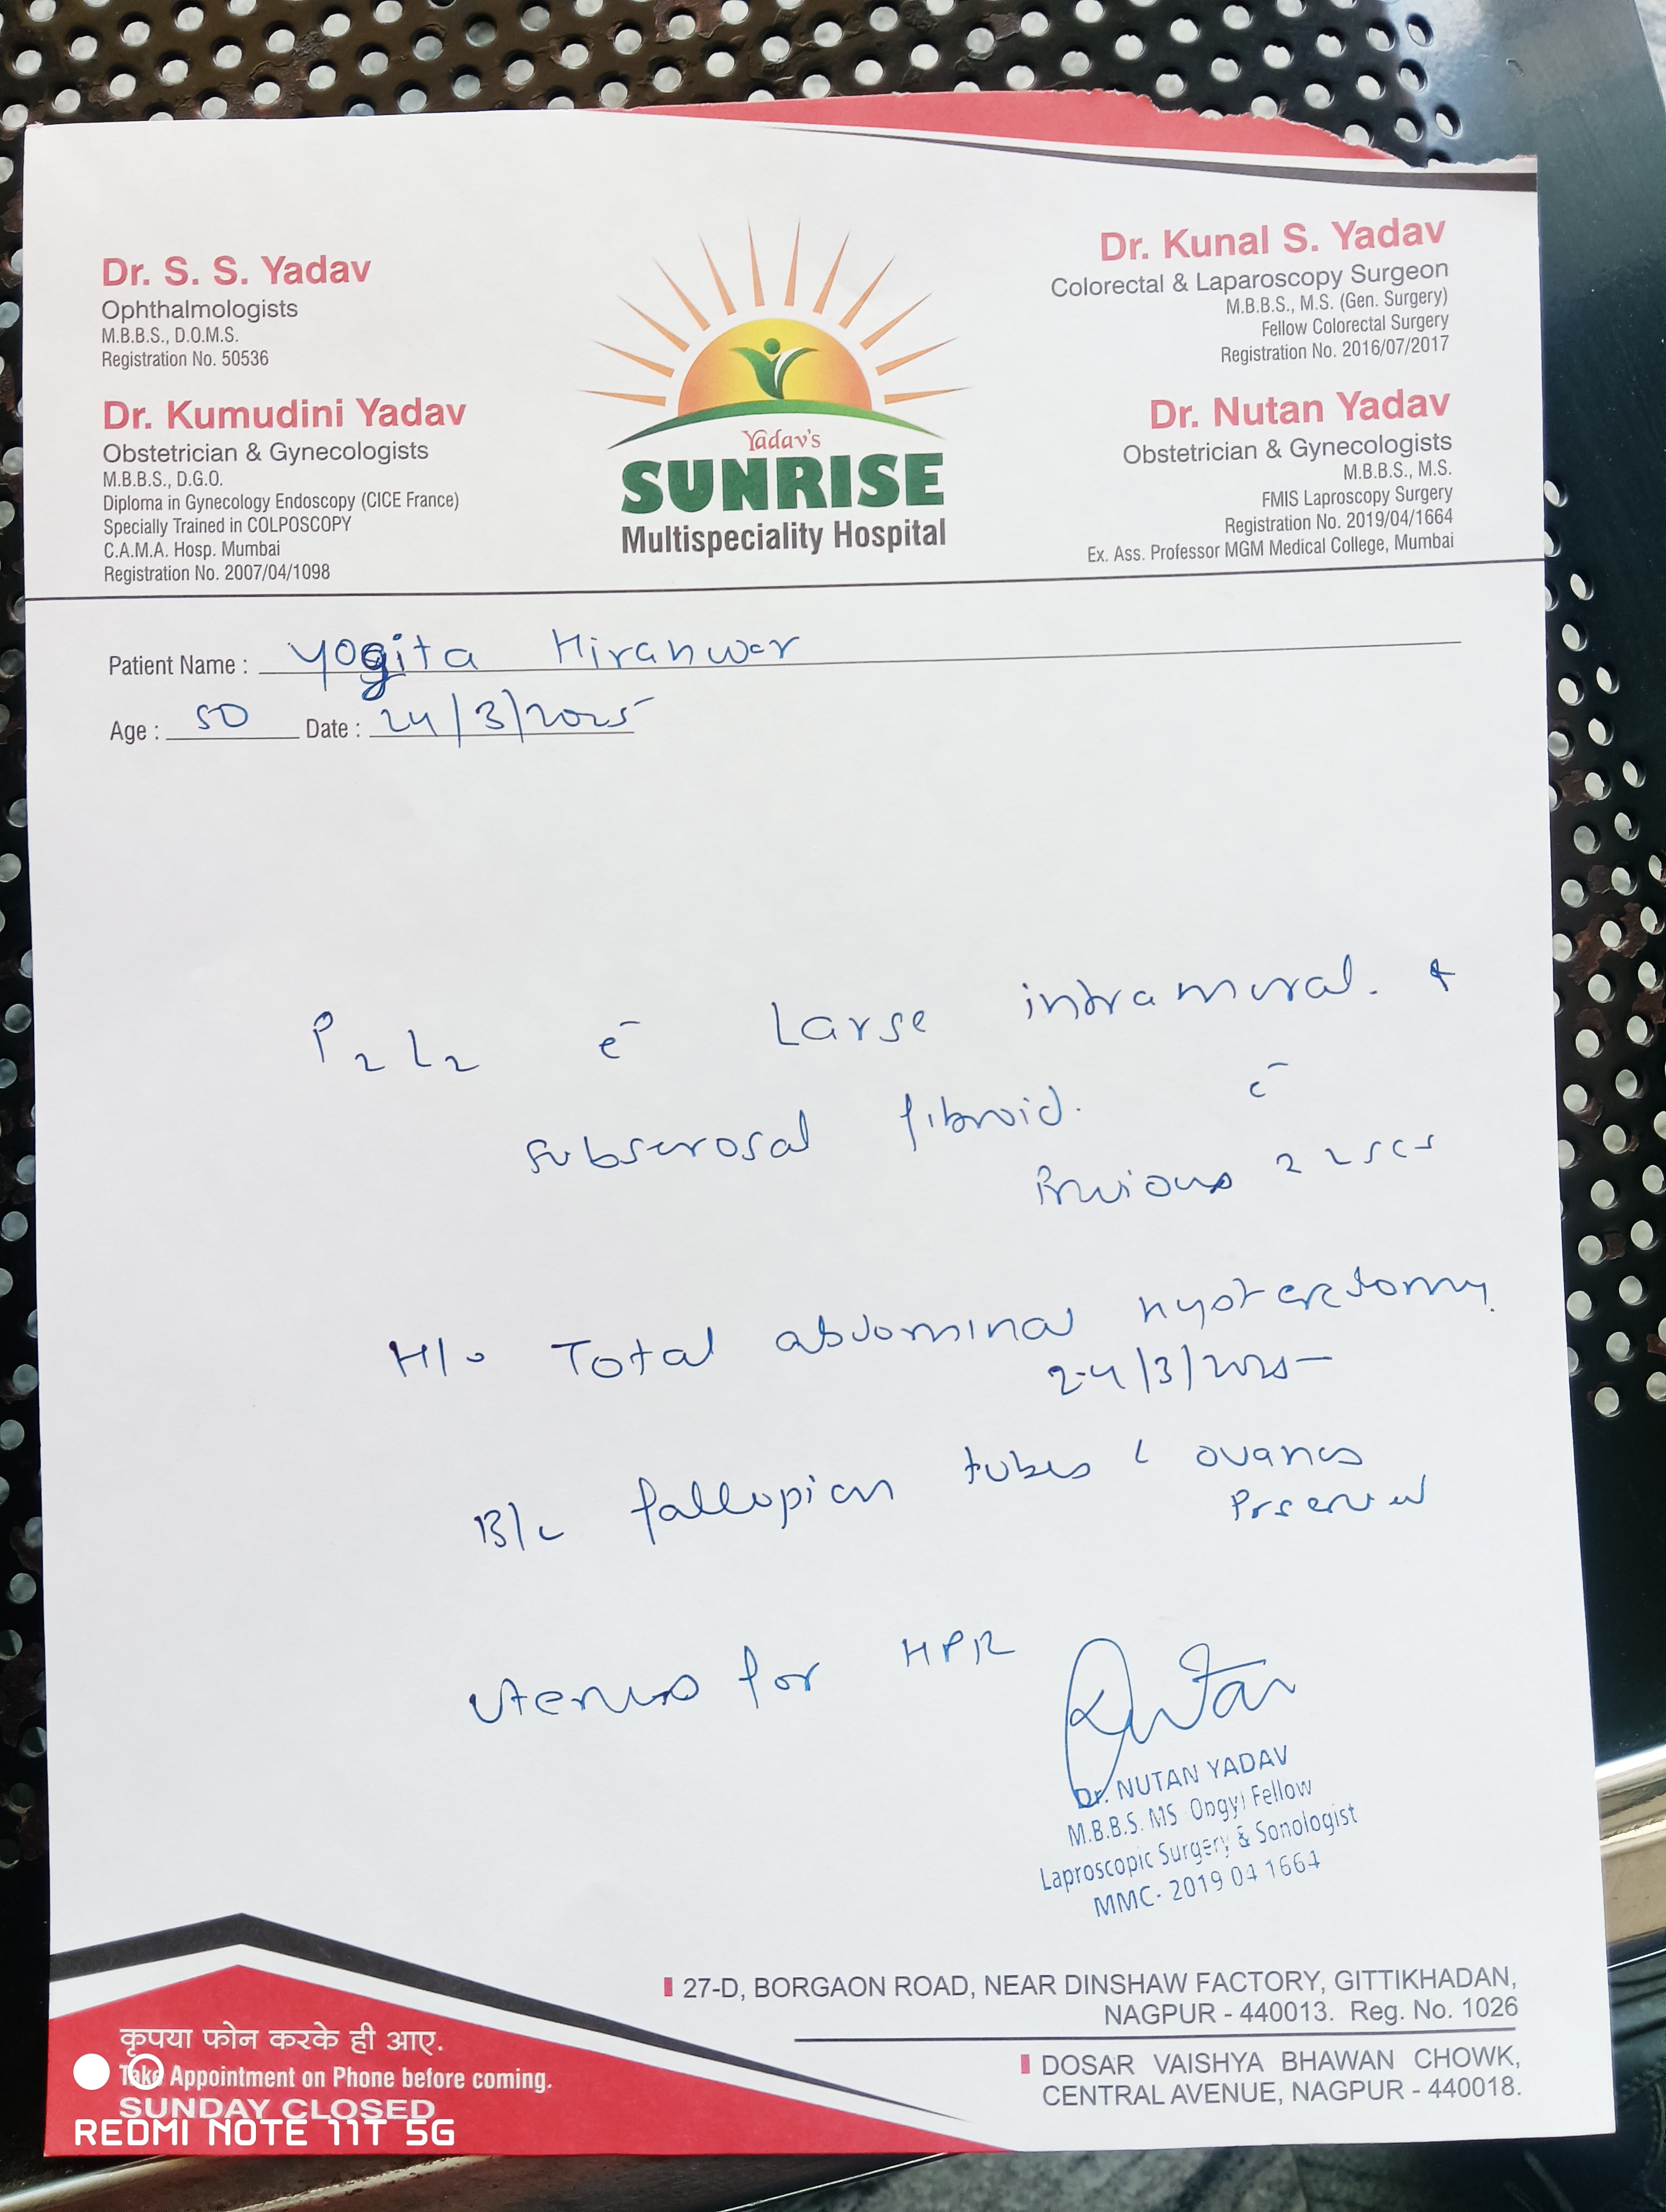 Dr. S. S. Yadav
Ophthalmologists
M.B.B.S., D.O.M.S.
Registration No. 50536
Dr. Kumudini Yadav
Obstetrician & Gynecologists
M.B.B.S., D.G.O.
Diploma in Gynecology Endoscopy (CICE France)
Specially Trained in COLPOSCOPY
C.A.M.A. Hosp. Mumbai
Registration No. 2007/04/1098
Yadav's
SUNRISE
Multispeciality Hospital
Dr. Kunal S. Yadav
Colorectal & Laparoscopy Surgeon
M.B.B.S., M.S. (Gen. Surgery)
Fellow Colorectal Surgery
Registration No. 2016/07/2017
Dr. Nutan Yadav
Obstetrician & Gynecologists
M.B.B.S., M.S.
FMIS Laproscopy Surgery
Registration No. 2019/04/1664
Ex. Ass. Professor MGM Medical College, Mumbai
Patient Name : Yogita Hiranwar
Age : 50 Date : 24/3/2025
P2L2 c̄ Large intramural &
subserosal fibroid. c̄
Previous 2 LSCS
H/o Total abdominal hysterectomy
24/3/2025
B/L fallopian tubes & ovaries
Preserved
Uterus for HPR
Nutan
Dr. NUTAN YADAV
M.B.B.S. MS Obgyi Fellow
Laproscopic Surgery & Sonologist
MMC- 2019 04 1664
27-D, BORGAON ROAD, NEAR DINSHAW FACTORY, GITTIKHADAN,
NAGPUR - 440013. Reg. No. 1026
DOSAR VAISHYA BHAWAN CHOWK,
CENTRAL AVENUE, NAGPUR - 440018.
कृपया फोन करके ही आए.
Take Appointment on Phone before coming.
SUNDAY CLOSED
REDMI NOTE 11T 5G